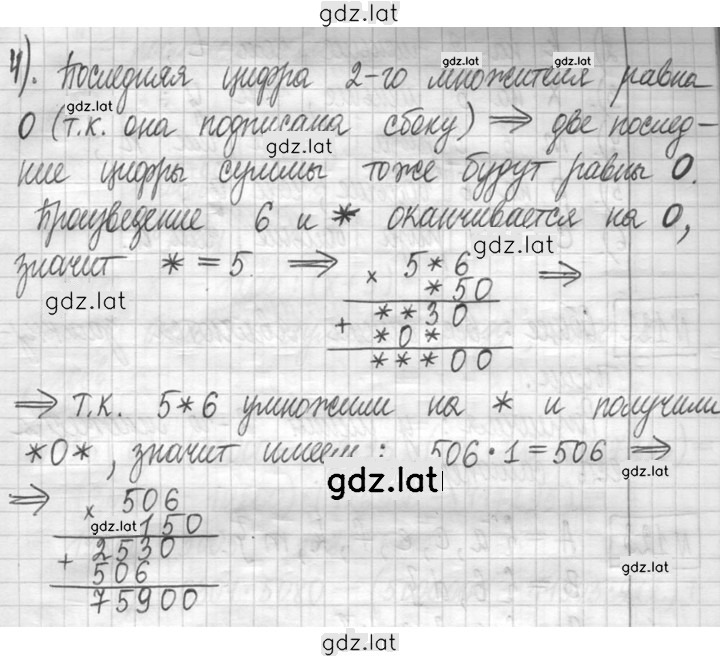 gdz.lat
4). Последняя цифра 2-го множителя равна
gdz.lat
gdz.lat
0 (т.к. она подписана сбоку) ⟹ две послед-
gdz.lat
ние цифры суммы тоже будут равны 0.
Произведение 6 и * оканчивается на 0,
gdz.lat
значит * = 5. ⟹ × 5*6 ⟹
gdz.lat
*50
+ **30
*0*
***00
⟹ т.к. 5*6 умножили на * и получили
*0*, значит имеем: 506·1=506 ⟹
gdz.lat
gdz.lat
⟹ × 506
gdz.lat
150
+ 2530
506
gdz.lat
75900
gdz.lat